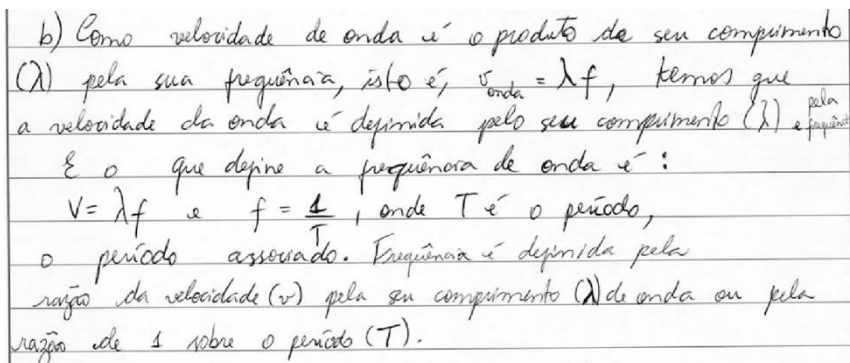 b) Como velocidade de onda é o produto de seu comprimento
(λ) pela sua frequência, isto é, v_onda = λf, temos que
a velocidade da onda é definida pelo seu comprimento (λ) e pela frequência
E o que define a frequência de onda é:
V = λf e f = 1/T, onde T é o período,
o período associado. Frequência é definida pela
razão da velocidade (v) pela seu comprimento (λ) de onda ou pela
razão de 1 sobre o período (T).